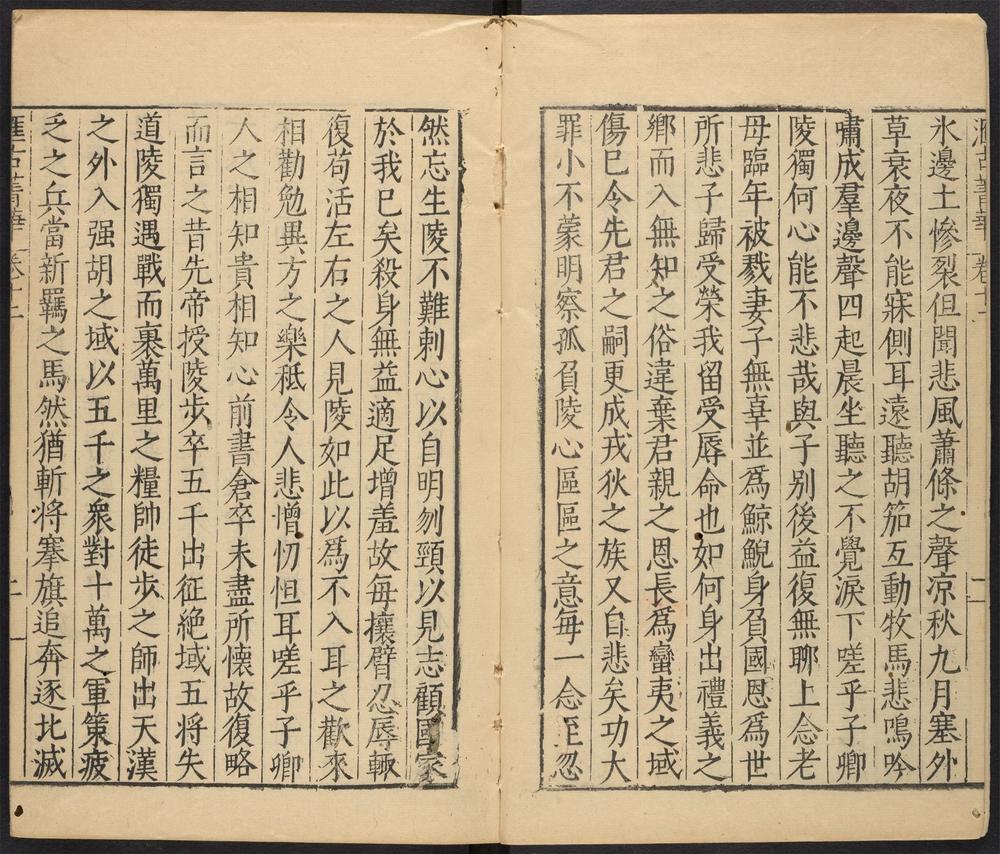 冰邊土慘裂但聞悲風蕭條之聲凉秋九月塞外
草衰夜不能寐側耳遠聽胡笳互動牧馬悲鳴吟
嘯成羣邊聲四起晨坐聽之不覺淚下嗟乎子卿
陵獨何心能不悲哉與子别後益復無聊上念老
母臨年被戮妻子無辜並爲鯨鯢身負國恩爲世
所悲子歸受榮我留受辱命也如何身出禮義之
鄉而入無知之俗違棄君親之恩長爲蠻夷之域
傷巳令先君之嗣更成戎狄之族又自悲矣功大
罪小不蒙明察孤負陵心區區之意每一念至忽
然忘生陵不難剌心以自明刎頸以見志顧國家
於我巳矣殺身無益適足增羞故每攘臂忍辱輙
復苟活左右之人見陵如此以爲不入耳之歡來
相勸勉異方之樂秪令人悲增忉怛耳嗟乎子卿
人之相知貴相知心前書倉卒未盡所懷故復略
而言之昔先帝授陵步卒五千出征絶域五將失
道陵獨遇戰而裹萬里之糧帥徒步之師出天漢
之外入强胡之域以五千之衆對十萬之軍策疲
乏之兵當新羈之馬然猶斬將搴旗追奔逐北滅